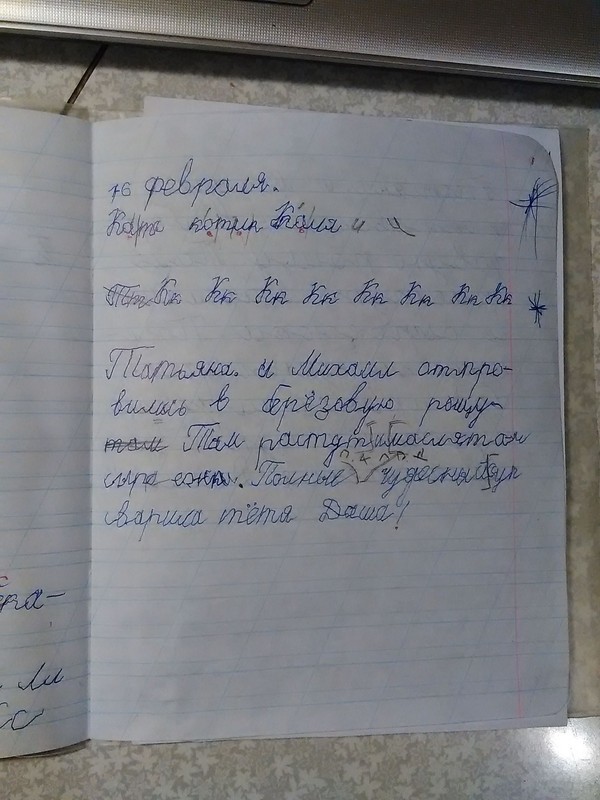 16 февраля.
Катя котик Коля и
Кк Кк Кк Кк Кк Кк Кк Кк
Татьяна и Михаил отпра-
вились в берёзовую рощу
там Там растут маслята
сыро Полные чудесный суп
сварила тётя Даша!
ка-
Ли
Сс